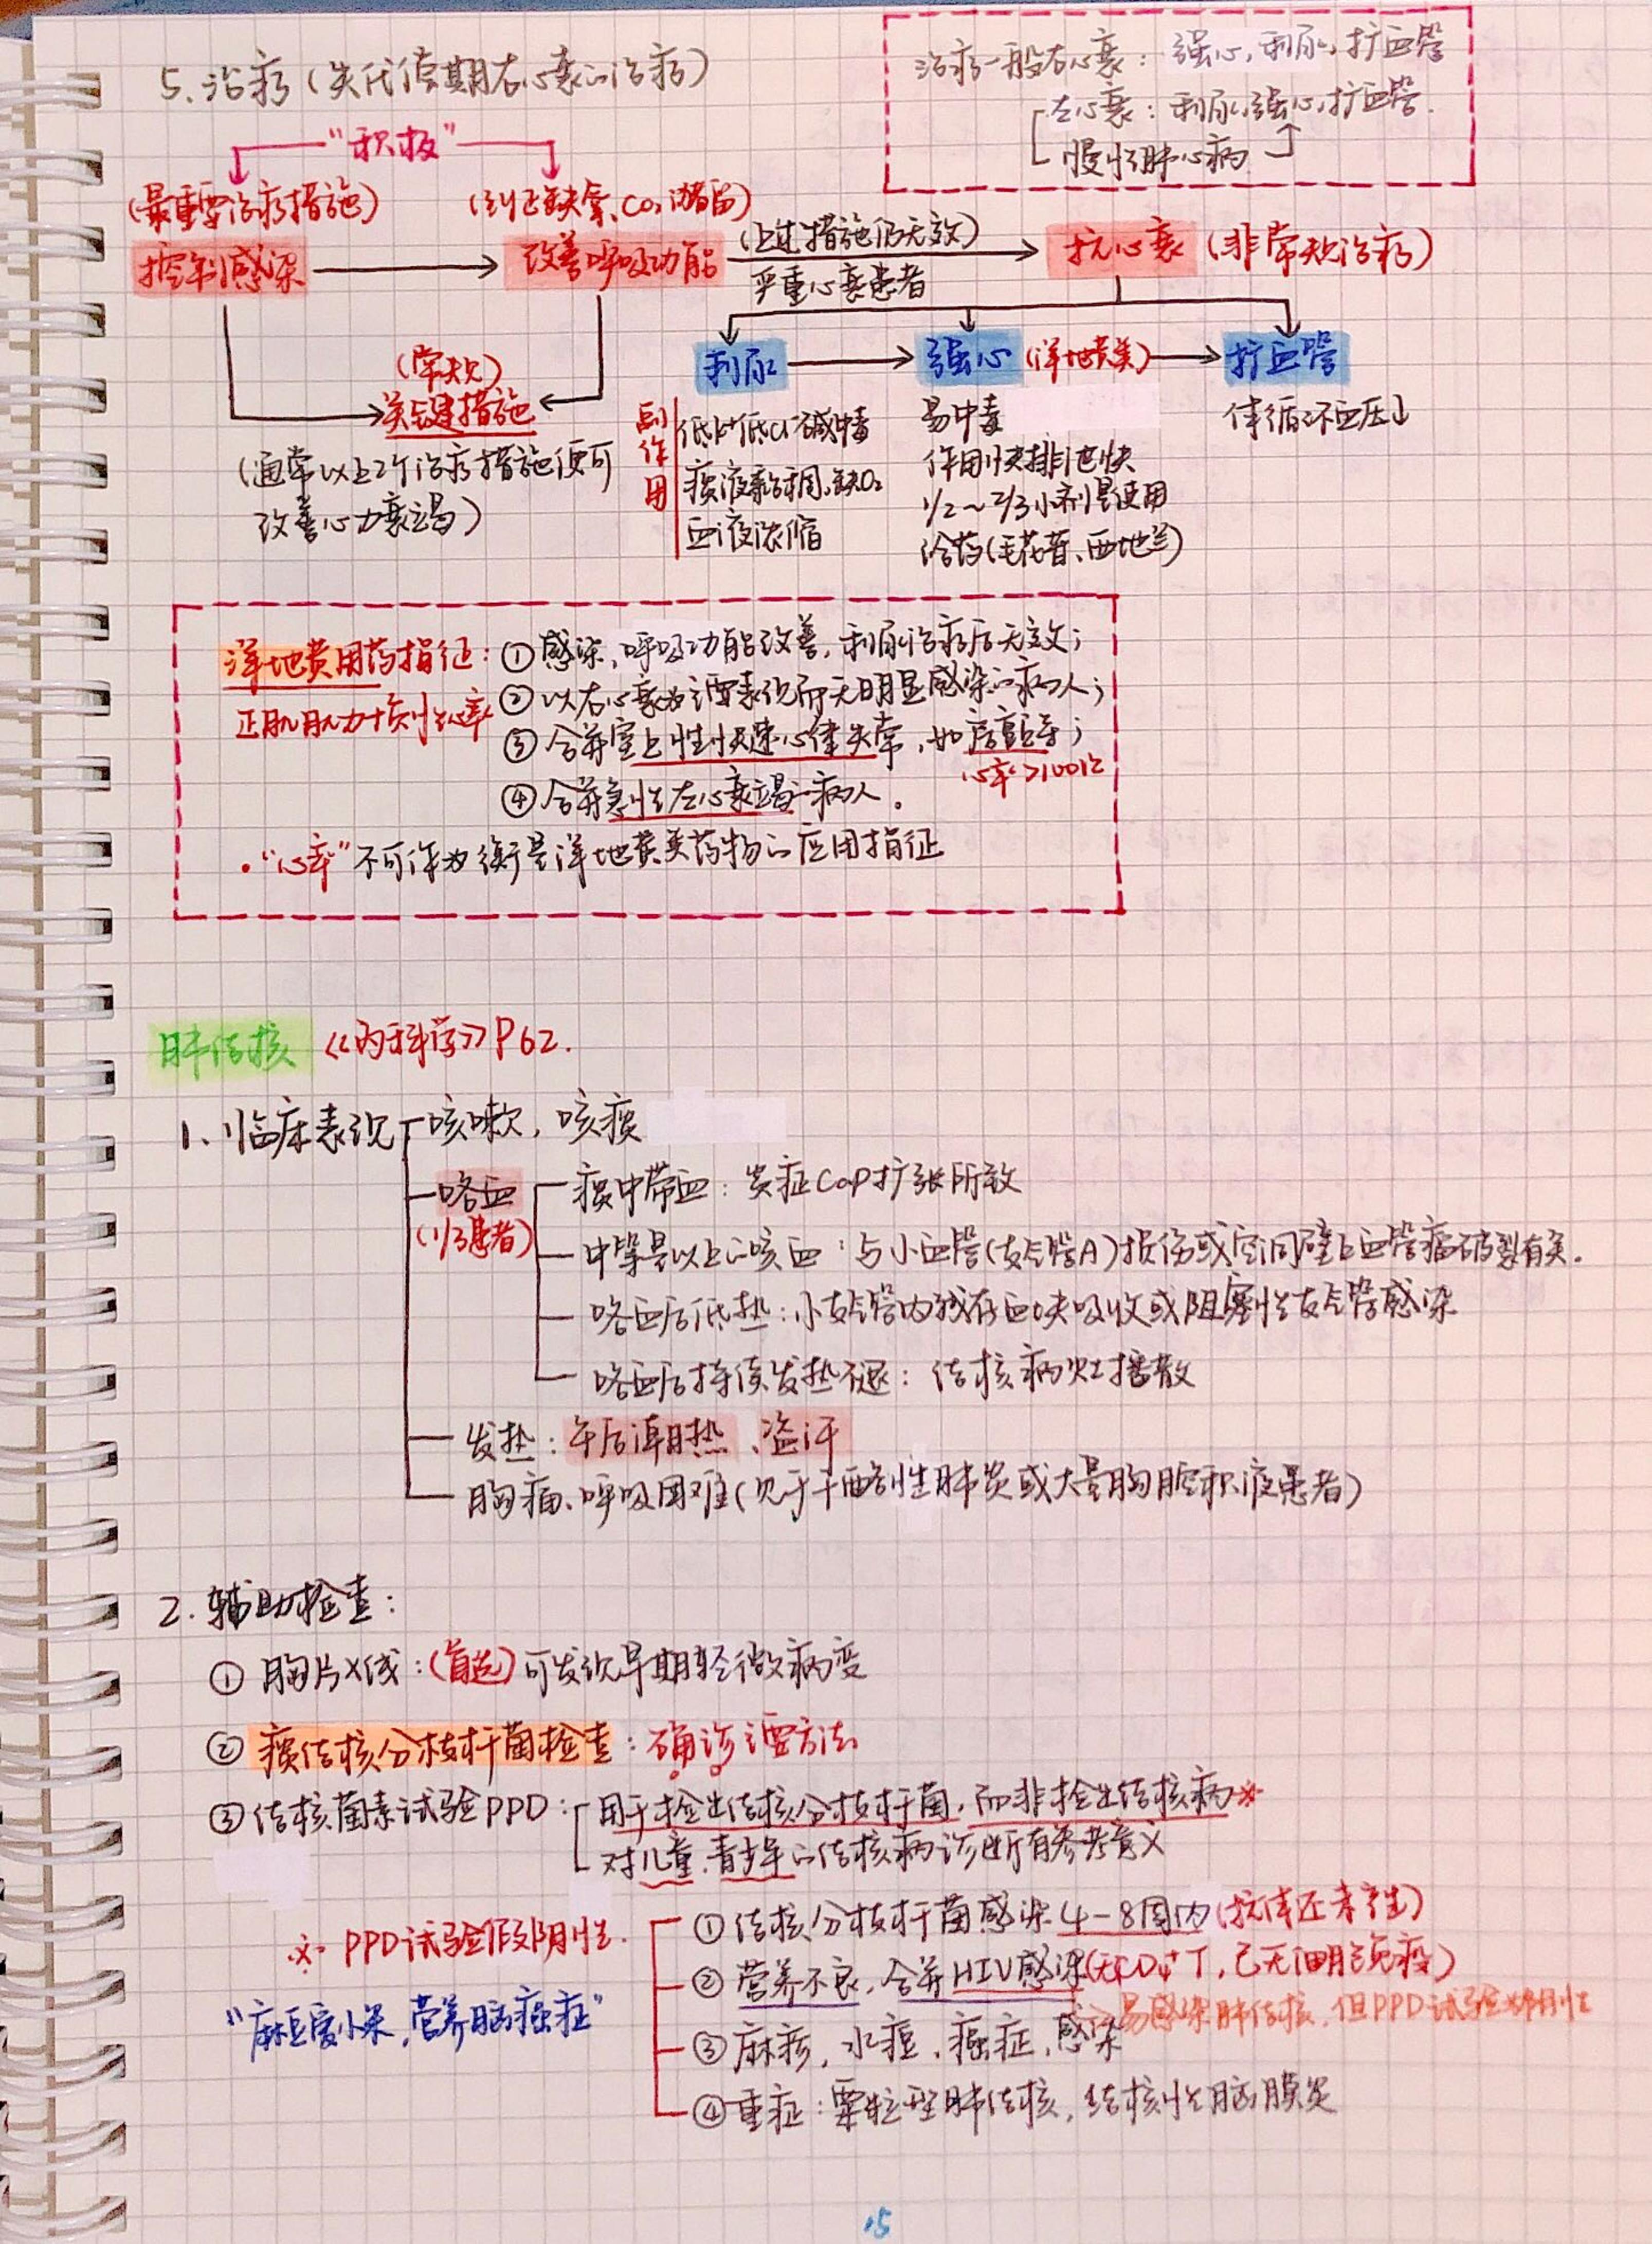 5.治疗(失代偿期右心衰的治疗)
治疗一般右心衰：强心,利尿,扩血管
左心衰：利尿,强心,扩血管.
慢性肺心病
"积极"
(最重要治疗措施)
(纠正缺氧、CO₂潴留)
控制感染
改善呼吸功能
(上述措施仍无效)
严重心衰患者
抗心衰 (非常规治疗)
利尿
强心 (洋地黄类)
扩血管
(常规)
关键措施
(通常以上2个治疗措施便可
改善心力衰竭)
副作用
低K⁺低Cl⁻碱中毒
痰液黏稠,缺O₂
血液浓缩
易中毒
作用快排泄快
1/2~2/3小剂量使用
给药(毛花苷、西地兰)
体循环血压↓
洋地黄用药指征：①感染,呼吸功能改善,利尿治疗后无效；
正肌肌力+负性心率
②以右心衰为主要表现而无明显感染的病人；
③合并室上性快速心律失常,如房颤等；
心率>100次
④合并急性左心衰竭的病人.
·"心率"不可作为衡量洋地黄类药物的应用指征
肺结核 《内科学》P62.
1、临床表现 咳嗽, 咳痰
咯血
(1/3患者)
痰中带血：炎症Cap扩张所致
中等量以上的咳血：与小血管(支气管A)损伤或空洞壁上血管瘤破裂有关.
咯血后低热：小支气管内残存血块吸收或阻塞性支气管感染
咯血后持续发热不退：结核病灶播散
发热：午后潮热、盗汗
胸痛、呼吸困难(见于干酪性肺炎或大量胸腔积液患者)
2. 辅助检查：
① 胸片X线：(首选)可发现早期轻微病变
② 痰结核分枝杆菌检查：确诊主要方法
③ 结核菌素试验PPD：用于检出结核分枝杆菌,而非检出结核病※
对儿童.青少年的结核病诊断有参考意义
※ PPD试验假阴性.
"麻豆爱小朵,营养脑癌症"
①结核分枝杆菌感染4-8周内(抗体还未产生)
②营养不良,合并HIV感染(无CD4⁺T,已无细胞免疫)
→易感染肺结核,但PPD试验为阴性
③麻疹,水痘,癌症,感染
④重症：粟粒型肺结核,结核性脑膜炎
15